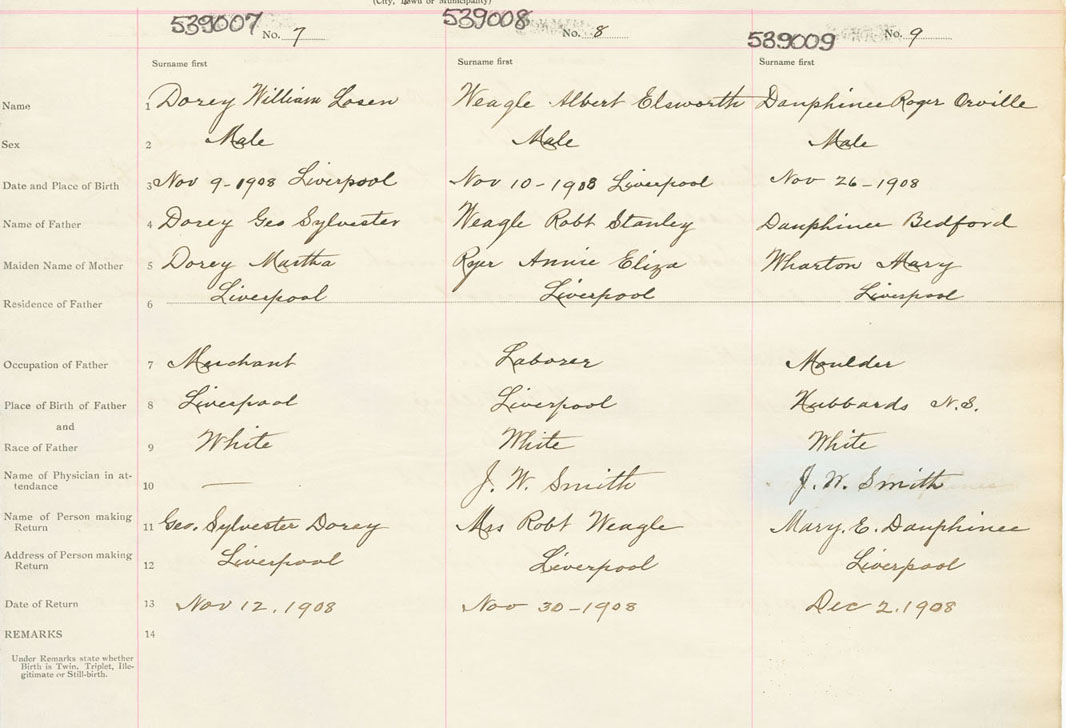 (City, Town or Municipality)
539007 No. 7 539008 No. 8 539009 No. 9
Surname first Surname first Surname first
Name 1 Dorey William Losen Weagle Albert Elsworth Dauphinee Roger Orville
Sex 2 Male Male Male
Date and Place of Birth 3 Nov 9-1908 Liverpool Nov 10-1908 Liverpool Nov 26-1908
Name of Father 4 Dorey Geo Sylvester Weagle Robt Stanley Dauphinee Bedford
Maiden Name of Mother 5 Dorey Martha Annie Eliza Wharton Mary
Residence of Father 6 Liverpool Liverpool Liverpool
Occupation of Father 7 Merchant Laborer Moulder
Place of Birth of Father 8 Liverpool Liverpool Hubbards N.S.
and
Race of Father 9 White White White
Name of Physician in at-
tendance 10 — J. W. Smith J. W. Smith
Name of Person making
Return 11 Geo. Sylvester Dorey Mrs Robt Weagle Mary. E. Dauphinee
Address of Person making
Return 12 Liverpool Liverpool Liverpool
Date of Return 13 Nov 12, 1908 Nov 30-1908 Dec 2, 1908
REMARKS 14
Under Remarks state whether
Birth is Twin, Triplet, Ille-
gitimate or Still-birth.